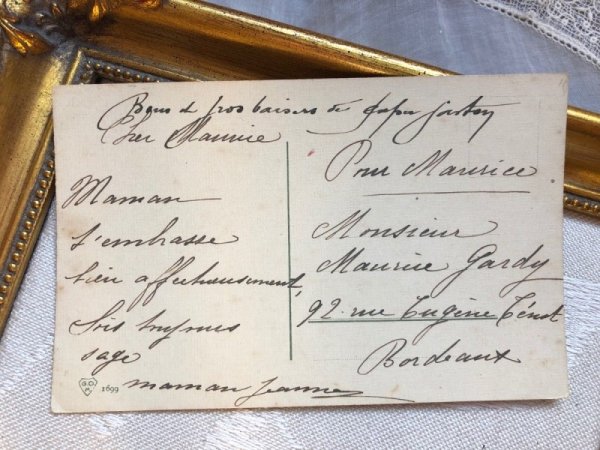 Bons & gros baisers de papa Gaston
Cher Maurice
Maman
t'embrasse
bien affectueusement,
Sois toujours
sage
maman Jeanne
Pour Maurice
Monsieur
Maurice Gardy
92. rue Eugène Ténot
Bordeaux
G.G.
1699